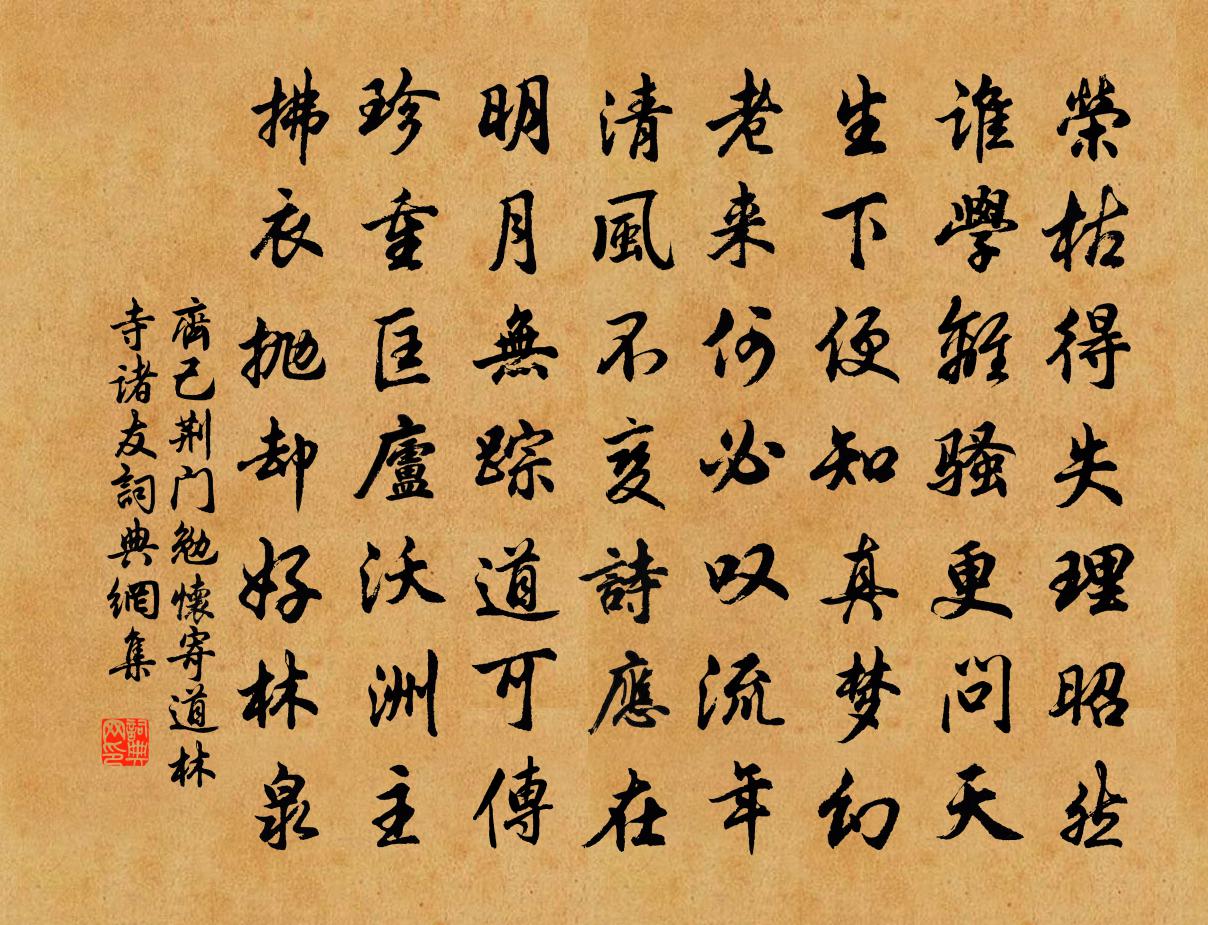 榮枯得失理昭然
谁學離騷更问天
生下便知真梦幻
老来何必叹流年
清風不变詩應在
明月無踪道可傳
珍重匡廬沃洲主
拂衣抛却好林泉
齊己荆门勉懷寄道林
寺诸友詞典網集
詞典
网印